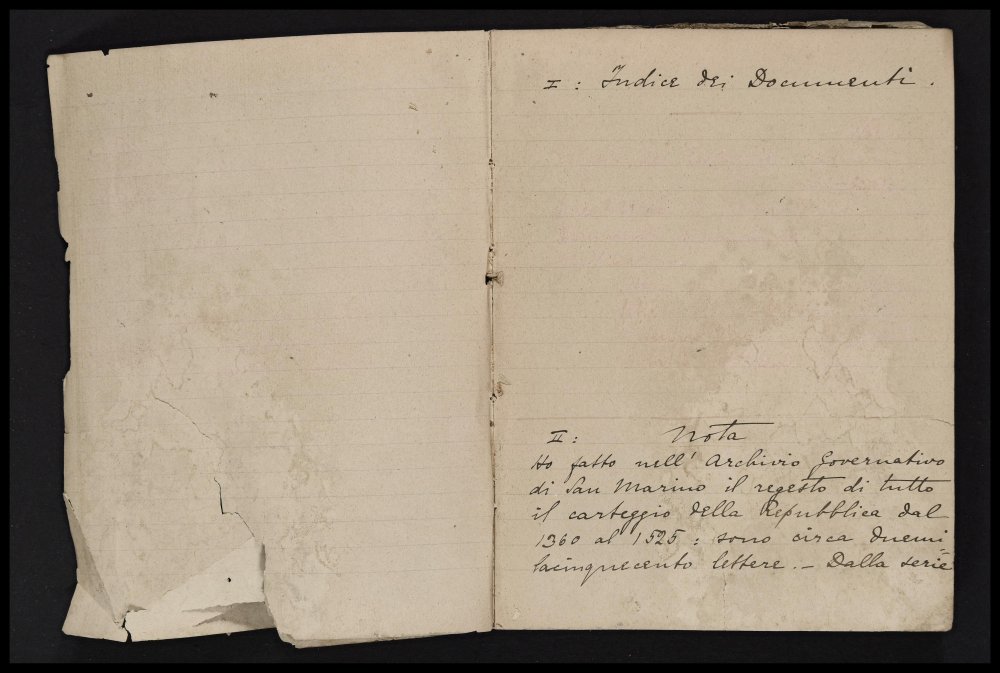 I : Indice dei Documenti.
II : Nota
Ho fatto nell' Archivio Governativo
di San Marino il regesto di tutto
il carteggio della Repubblica dal
1360 al 1525 : sono circa duemi=
lacinquecento lettere. – Dalla serie